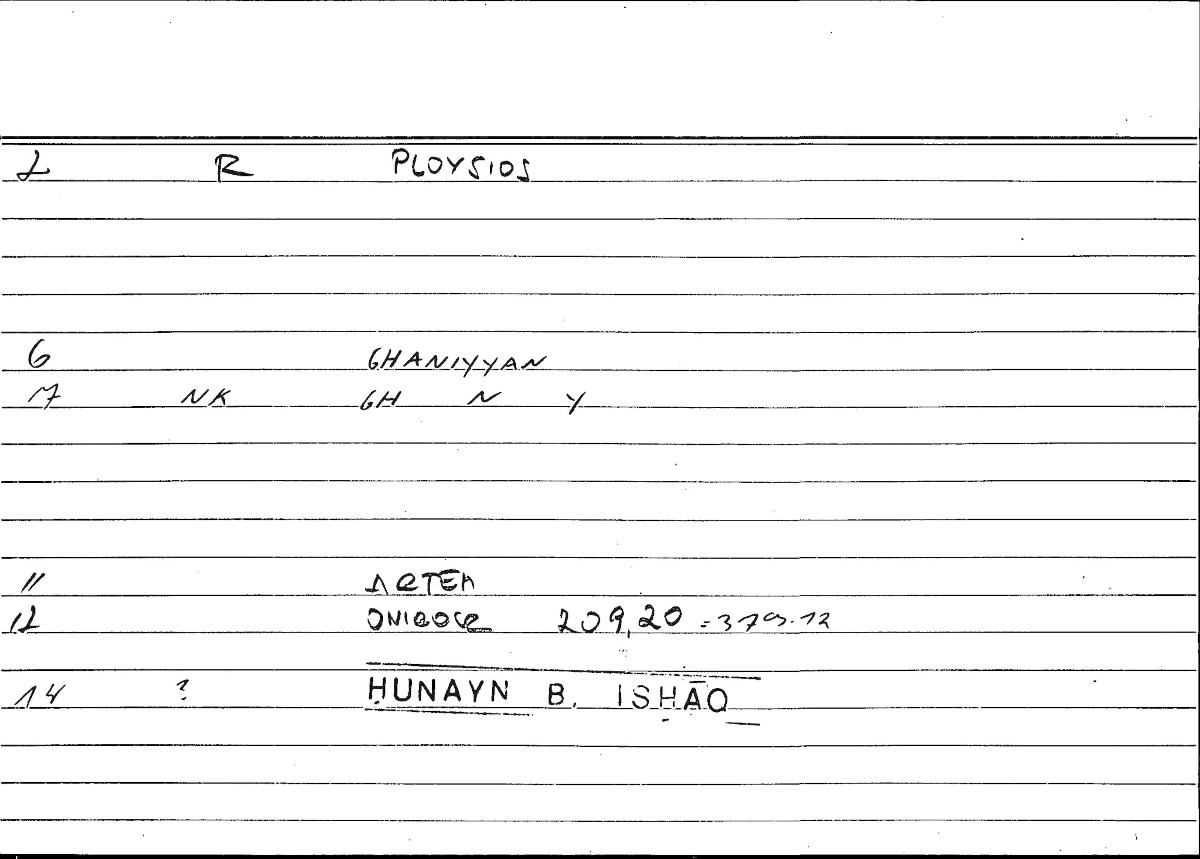 L R PLOYSIOS
6 GHANIYYAN
7 NK GH N Y
11 ARTEM
12 ONIROCR 209,20 = 379.12
14 ? ḤUNAYN B. ISḤĀQ